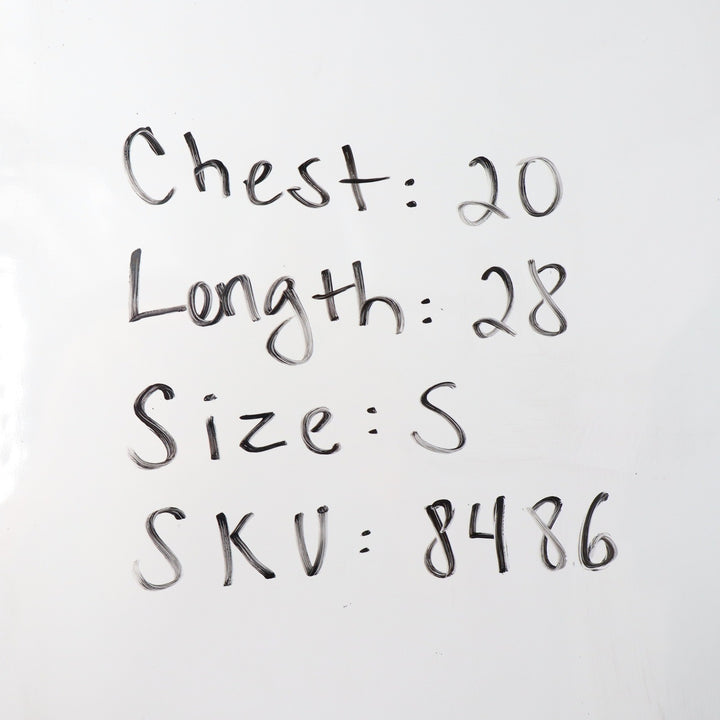 Chest: 20
Length: 28
Size: S
SKU: 8486